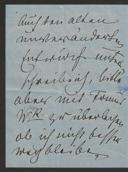 Auch den alten
unveränderten
Entwurf
schreiblich, bitte
aber mit Ernst
zu überlegen
ob ich nicht besser
wegbleibe.